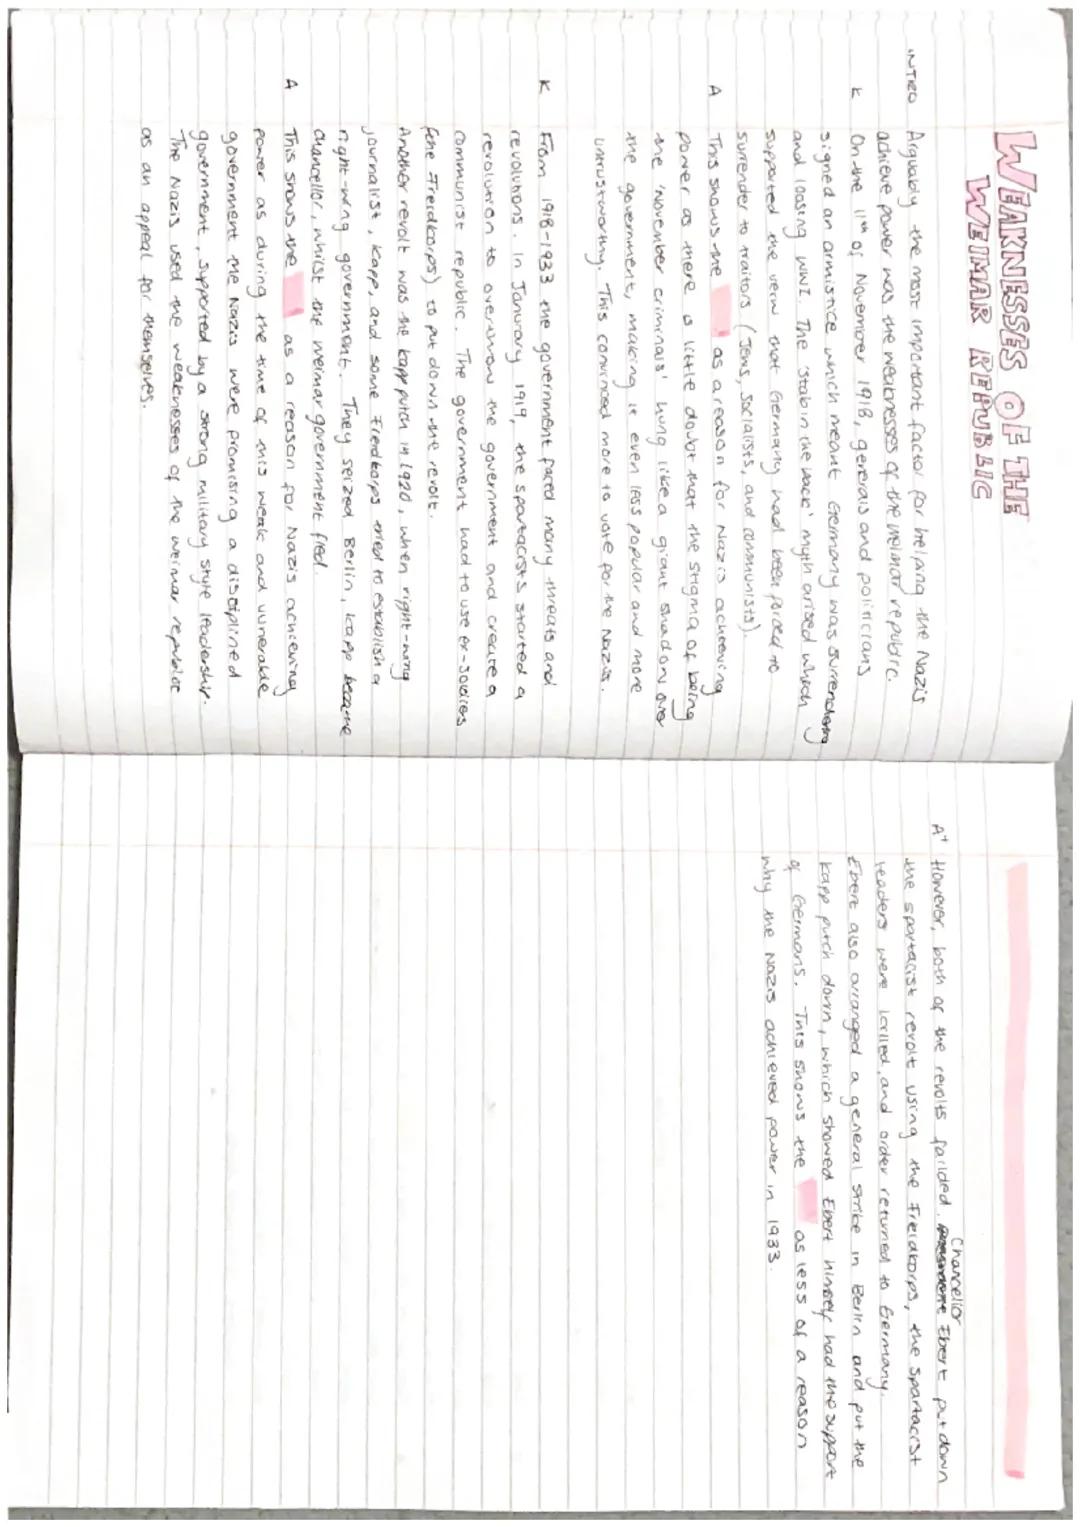 WEAKNESSES OF THE
WEIMAR REPUBLIC
INTRO Arguably the most important factor for helping the Nazis
achieve power was the weaknesses of the weimar republic.
K On the 11th of November 1918, generals and politicians
signed an armistice which meant Germany was surrendering
and loosing WW1. The 'stab in the back' myth arised which
supported the veiw that Germany had been forced to
surrender to traitors (Jews, socialists, and communists).
A This shows the as a reason for Nazis acheeving
power as there is little doubt that the stigma of being
the 'November criminals' hung like a giant shadow over
the government, making it even less popular and more
untrustworthy. This convinced more to vote for the Nazis.
K From 1918-1933 the government faced many threats and
revolutions. In January 1919, the spartacists started a
revolution to overthrow the government and create a
communist republic. The government had to use ex-soldiers
(the Freidkorps) to put down the revolt.
Another revolt was the kapp putch in 1920, when right-wing
journalist, kapp, and some Freidkorps tried to establish a
right-wing government. They seized Berlin, kapp became
chancellor, whilst the weimar government fled.
A This shows the as a reason for Nazis achieving
power as during the time of this weak and vunerable
government the Nazis were promising a disciplined
government, supported by a strong military style leadership.
The Nazis used the weaknesses of the weimar republic
as an appeal for themselves.
Chancellor
A+ However, both of the revolts failded. Ebert put down
the spartacist revolt using the Freidkorps, the spartacist
leaders were killed, and order returned to Germany.
Ebert also arranged a general strike in Berlin and put the
kapp putch down, which showed Ebert himself had the support
of Germans. This shows the as less of a reason
why the Nazis achieved power in 1933.